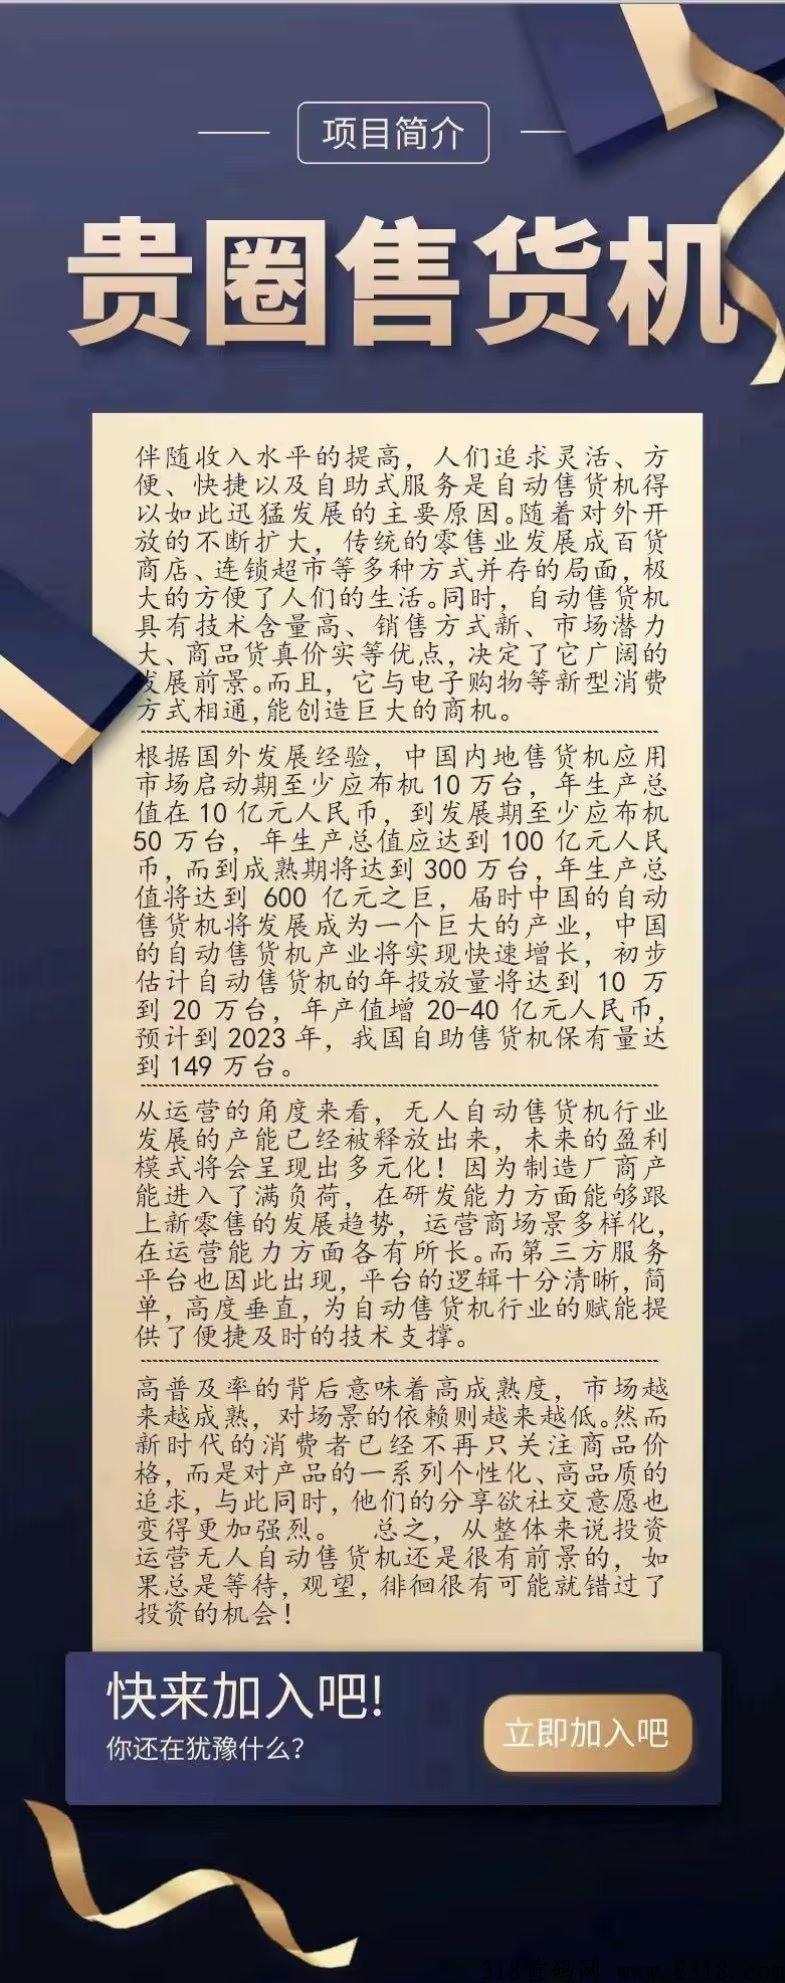 项目简介
贵圈售货机
伴随收入水平的提高，人们追求灵活、方
便、快捷以及自助式服务是自动售货机得
以如此迅猛发展的主要原因。随着对外开
放的不断扩大，传统的零售业发展成百货
商店、连锁超市等多种方式并存的局面，极
大的方便了人们的生活。同时，自动售货机
具有技术含量高、销售方式新、市场潜力
大、商品货真价实等优点，决定了它广阔的
发展前景。而且，它与电子购物等新型消费
方式相通，能创造巨大的商机。
根据国外发展经验，中国内地售货机应用
市场启动期至少应布机10万台，年生产总
值在10亿元人民币，到发展期至少应布机
50万台，年生产总值应达到100亿元人民
币，而到成熟期将达到300万台，年生产总
值将达到 600 亿元之巨，届时中国的自动
售货机将发展成为一个巨大的产业，中国
的自动售货机产业将实现快速增长，初步
估计自动售货机的年投放量将达到 10 万
到 20 万台，年产值增 20-40 亿元人民币，
预计到2023年，我国自助售货机保有量达
到149万台。
从运营的角度来看，无人自动售货机行业
发展的产能已经被释放出来，未来的盈利
模式将会呈现出多元化！因为制造厂商产
能进入了满负荷，在研发能力方面能够跟
上新零售的发展趋势，运营商场景多样化，
在运营能力方面各有所长。而第三方服务
平台也因此出现，平台的逻辑十分清晰，简
单，高度垂直，为自动售货机行业的赋能提
供了便捷及时的技术支撑。
高普及率的背后意味着高成熟度，市场越
来越成熟，对场景的依赖则越来越低。然而
新时代的消费者已经不再只关注商品价
格，而是对产品的一系列个性化、高品质的
追求，与此同时，他们的分享欲社交意愿也
变得更加强烈。 总之，从整体来说投资
运营无人自动售货机还是很有前景的，如
果总是等待，观望，徘徊很有可能就错过了
投资的机会！
快来加入吧!
你还在犹豫什么？
立即加入吧
318首码网 www.F318.com